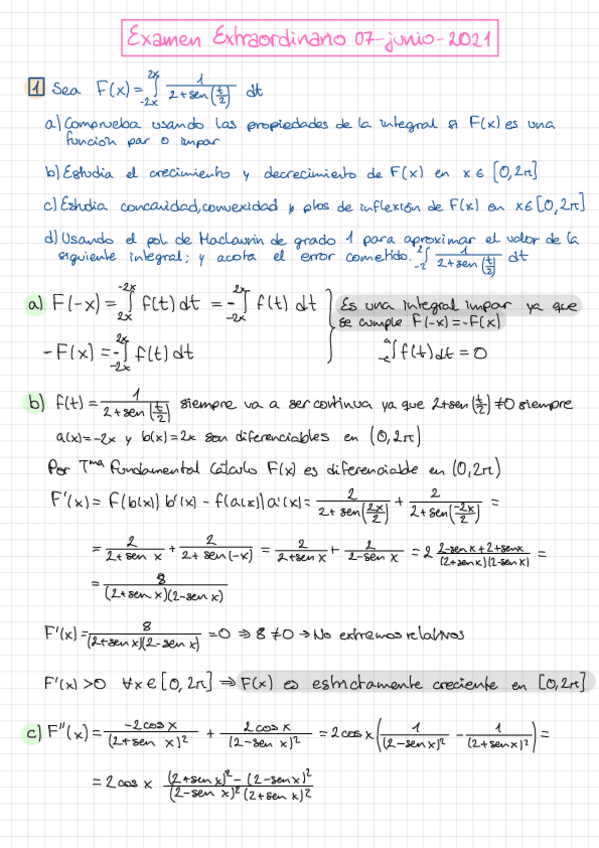 Examen Extraordinario 07-junio-2021
1 Sea F(x)=∫_{-2x}^{2x} 1/(2+sen(t/2)) dt
a) Comprueba usando las propiedades de la integral si F(x) es una
función par o impar
b) Estudia el crecimiento y decrecimiento de F(x) en x∈[0,2π]
c) Estudia concavidad, convexidad y ptos de inflexión de F(x) en x∈[0,2π]
d) Usando el pol. de Maclaurin de grado 1 para aproximar el valor de la
siguiente integral; y acota el error cometido. ∫_{-2}^{2} 1/(2+sen(t/2)) dt
a) F(-x)=∫_{2x}^{-2x} f(t) dt = -∫_{-2x}^{2x} f(t) dt } Es una integral impar ya que
se cumple F(-x)=-F(x)
-F(x)=-∫_{-2x}^{2x} f(t) dt ∫_{-a}^{a} f(t) dt = 0
b) f(t)= 1/(2+sen(t/2)) siempre va a ser continua ya que 2+sen(t/2)≠0 siempre
a(x)=-2x y b(x)=2x son diferenciables en (0,2π)
Por Tma Fundamental Cálculo F(x) es diferenciable en (0,2π)
F'(x) = f(b(x)) b'(x) - f(a(x)) a'(x) = 2/(2+sen(2x/2)) + 2/(2+sen(-2x/2)) =
= 2/(2+sen x) + 2/(2+sen(-x)) = 2/(2+sen x) + 2/(2-sen x) = 2 (2-sen x+2+sen x)/((2+sen x)(2-sen x)) =
= 8/((2+sen x)(2-sen x))
F'(x)= 8/((2+sen x)(2-sen x)) =0 ⇒ 8≠0 → No extremos relativos
F'(x)>0 ∀x∈[0,2π] ⇒ F(x) es estrictamente creciente en [0,2π]
c) F''(x)= -2cos x/(2+sen x)² + 2cos x/(2-sen x)² = 2cos x (1/(2-sen x)² - 1/(2+sen x)²) =
= 2cos x ((2+sen x)²-(2-sen x)²)/((2-sen x)²(2+sen x)²)